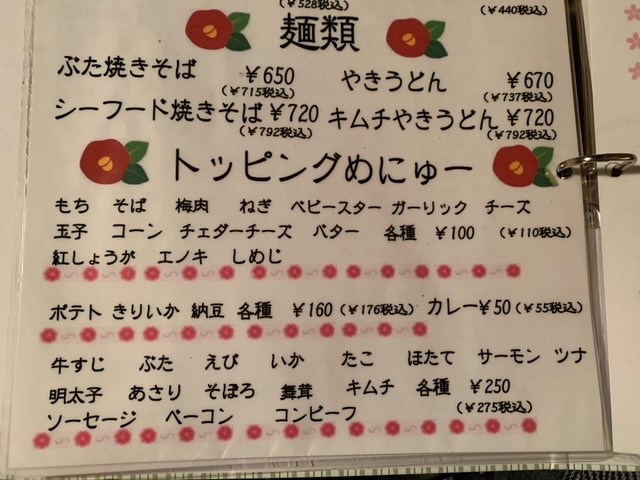 (￥528税込) (￥440税込)
麺類
ぶた焼きそば ￥650 やきうどん ￥670
(￥715税込) (￥737税込)
シーフード焼きそば ￥720 キムチやきうどん ￥720
(￥792税込) (￥792税込)
トッピングめにゅー
もち そば 梅肉 ねぎ ベビースター ガーリック チーズ
玉子 コーン チェダーチーズ バター 各種 ￥100 (￥110税込)
紅しょうが エノキ しめじ
ポテト きりいか 納豆 各種 ￥160 (￥176税込) カレー￥50 (￥55税込)
牛すじ ぶた えび いか たこ ほたて サーモン ツナ
明太子 あさり そぼろ 舞茸 キムチ 各種 ￥250
(￥275税込)
ソーセージ ベーコン コンビーフ